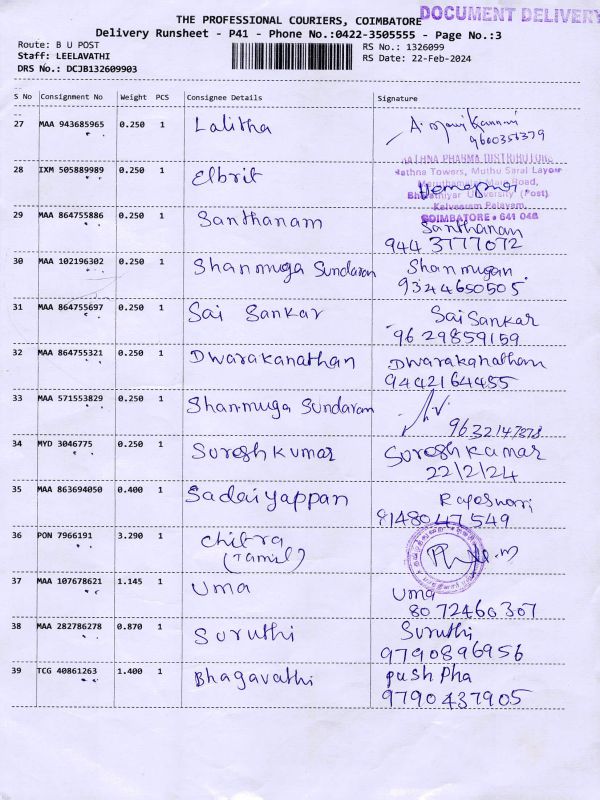 THE PROFESSIONAL COURIERS, COIMBATORE
DOCUMENT DELIVERY
Delivery Runsheet - P41 - Phone No.:0422-3505555 - Page No.:3
Route: B U POST
RS No.: 1326099
Staff: LEELAVATHI
RS Date: 22-Feb-2024
DRS No.: DCJB132609903
S No Consignment No Weight PCS Consignee Details Signature
27 MAA 943685965 0.250 1 Lalitha
9600353379
28 IXM 505889989 0.250 1 Elbrit
RATHNA PHARMA DISTRIBUTORS
Rathna Towers, Muthu Saral Layout
Road,
Bharathiyar University (Post)
Kalveeram Palayam,
COIMBATORE - 641 046
29 MAA 864755886 0.250 1 Santhanam Santhanam
944 3777072
30 MAA 102196302 0.250 1 Shanmuga Sundaram Shanmugan
9344650505
31 MAA 864755697 0.250 1 Sai Sankar Sai Sankar
96 29859159
32 MAA 864755321 0.250 1 Dwarakanathan Dwarakanatham
9442164455
33 MAA 571553829 0.250 1 Shanmuga Sundaram
9632147878
34 MYD 3046775 0.250 1 Sureshkumar Suresh Kumar
22/2/24
35 MAA 863694050 0.400 1 Sadaiyappan Rajeswari
8148047549
36 PON 7966191 3.290 1 Chitra
(Tamil)
37 MAA 107678621 1.145 1 Uma Uma
8072460307
38 MAA 282786278 0.870 1 Suruthi Suruthi
9790896956
39 TCG 40861263 1.400 1 Bhagavathi push Pha
9790437905